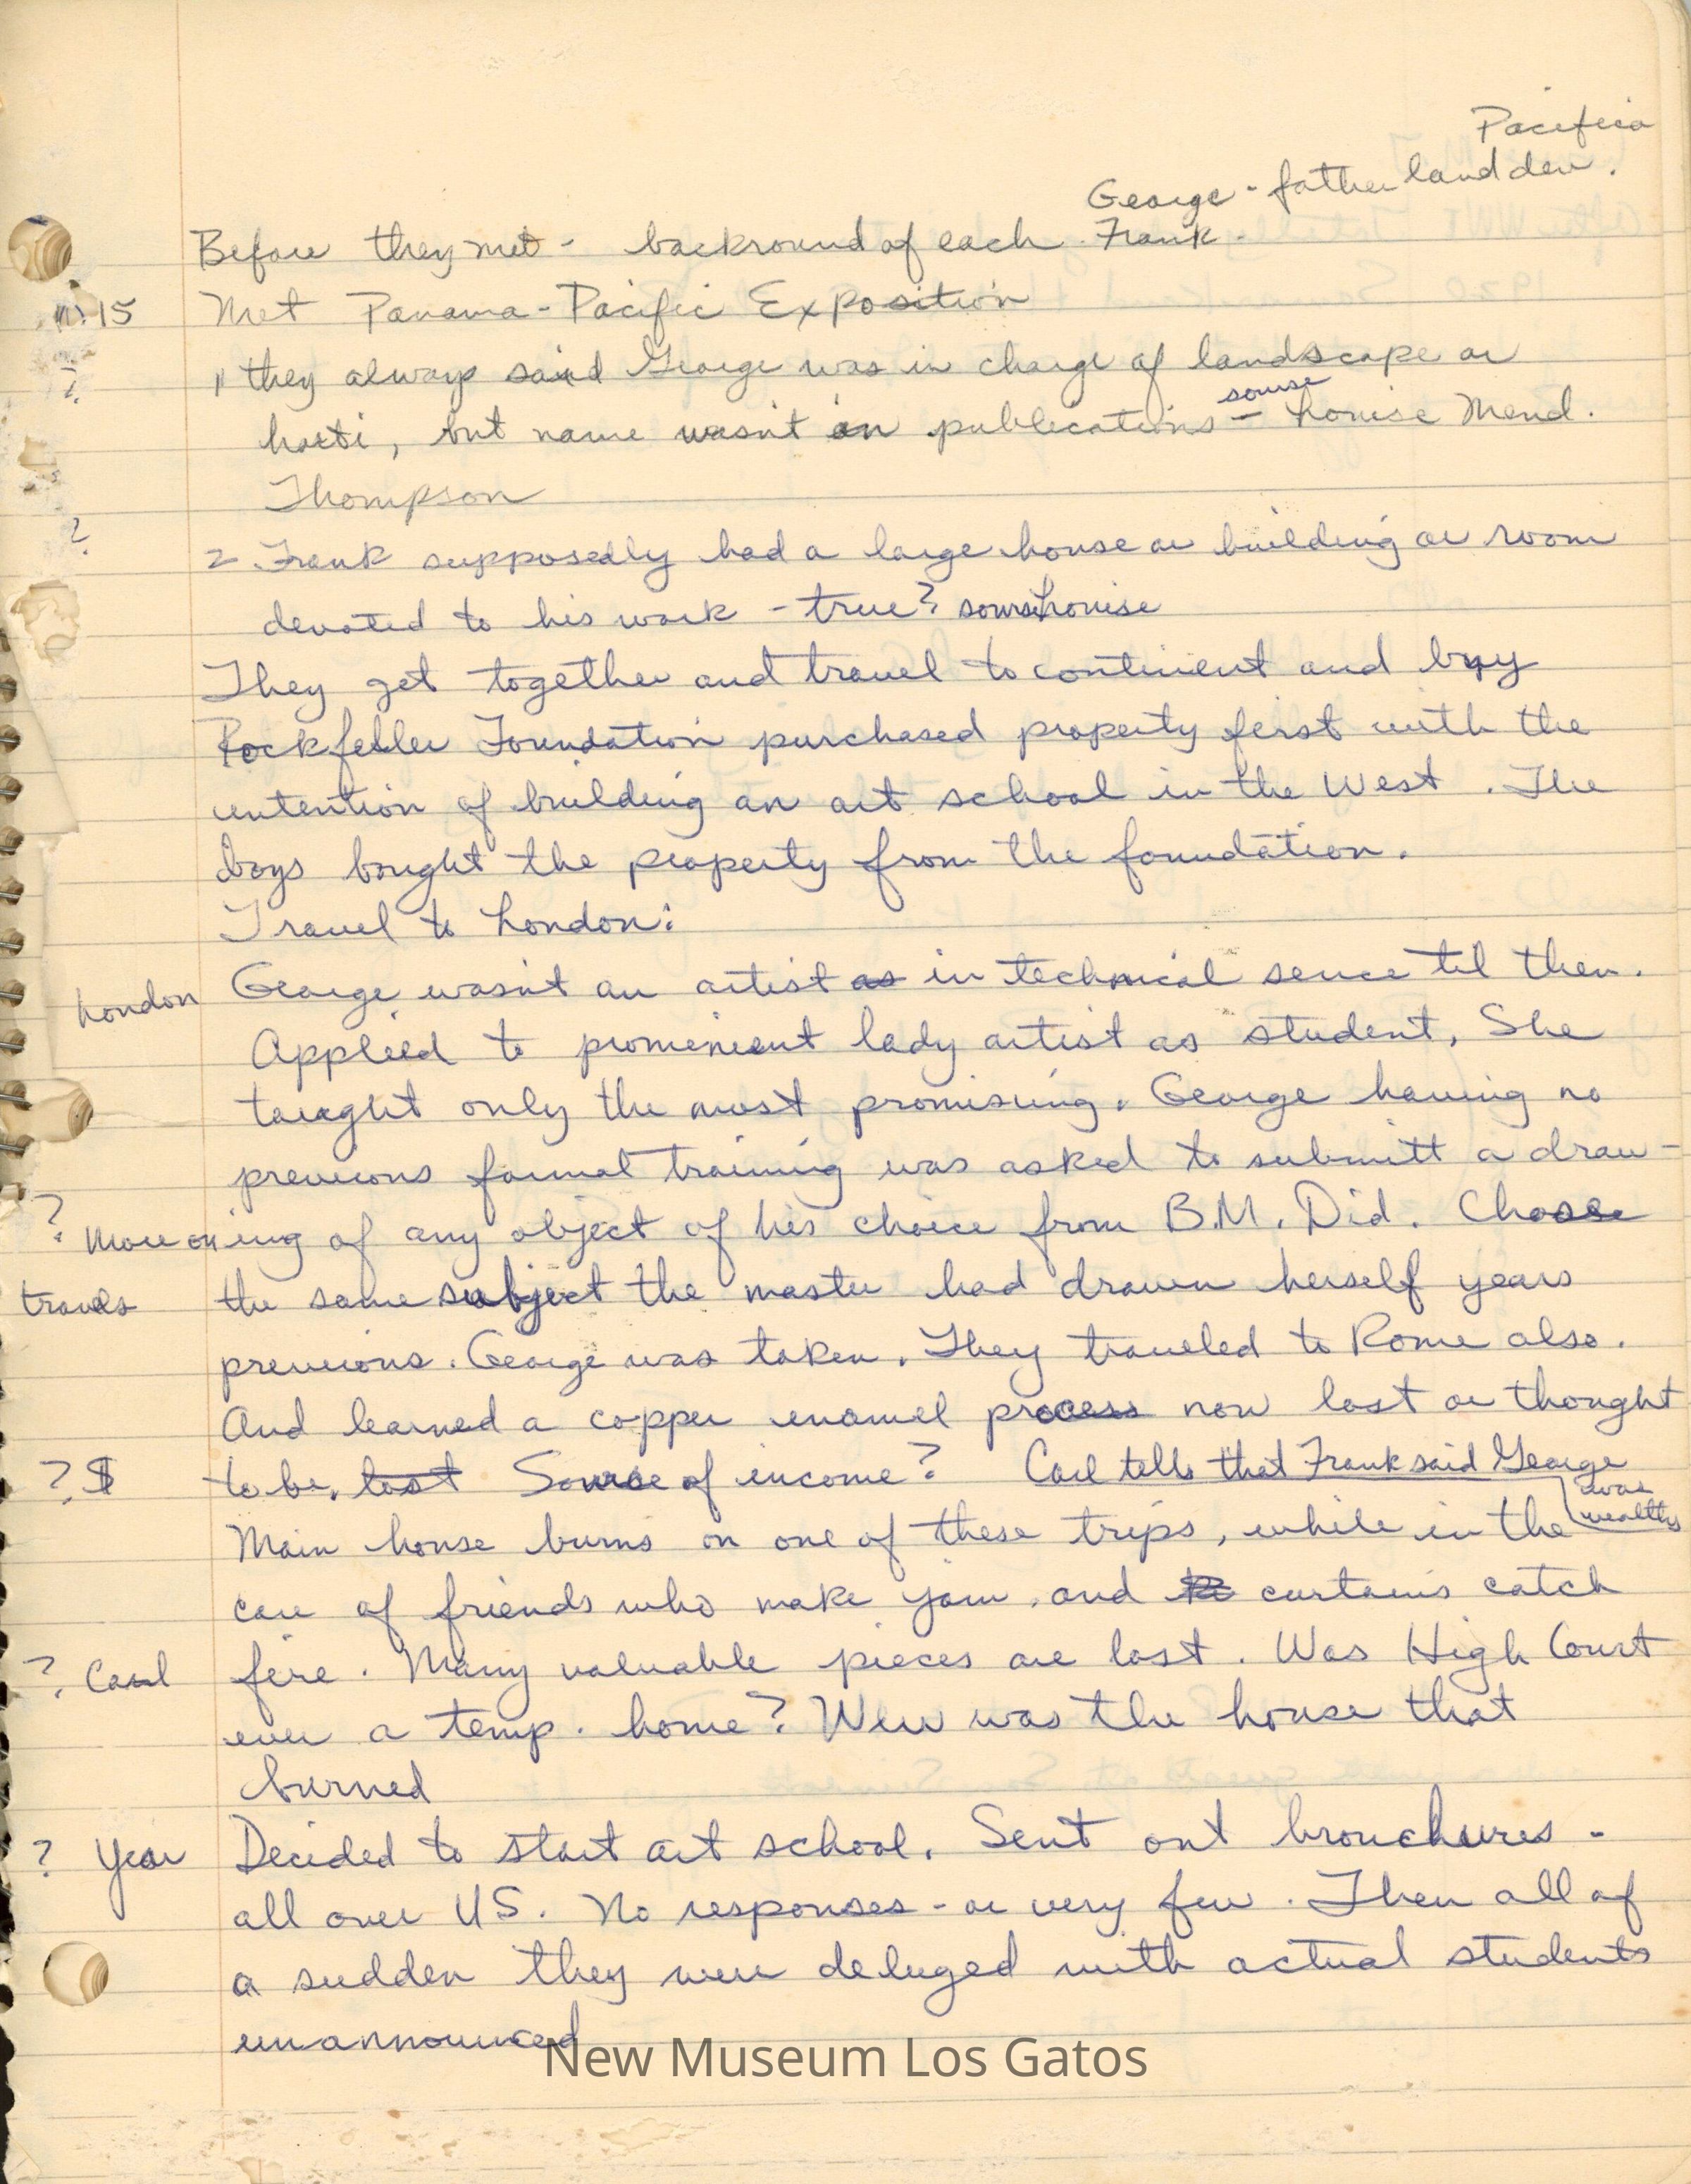 Pacifica
George - father land dev.
Before they met - backround of each. Frank -
15 Met Panama-Pacific Exposition
? 1 they always said George was in charge of landscape or
sourse
horti, but name wasn't in publications - Louise Mend.
Thompson
? 2. Frank supposedly had a large house or building or room
devoted to his work - true? sourse Louise
They get together and travel to continent and buy
Rockfeller Foundation purchased property first with the
intention of building an art school in the West. The
boys bought the property from the foundation.
Travel to London:
London George wasn't an artist as in technical sence til then.
Applied to prominent lady artist as student, She
taught only the most promising. George having no
previous formal training was asked to submitt a draw-
? More on ing of any object of his choice from B.M. Did. Choose
travels the same subject the master had drawn herself years
previous. George was taken. They traveled to Rome also.
And learned a copper enamel process now lost or thought
? $ to be. lost Sourse of income? Carl tells that Frank said George
was
wealthy
Main house burns on one of these trips, while in the
care of friends who make jam, and the curtains catch
? Carl fire. Many valuable pieces are lost. Was High Court
ever a temp. home? Were was the house that
burned
? Year Decided to start art school. Sent out brouchures -
all over US. No responses - or very few. Then all of
a sudden they were deluged with actual students
unannounced
New Museum Los Gatos